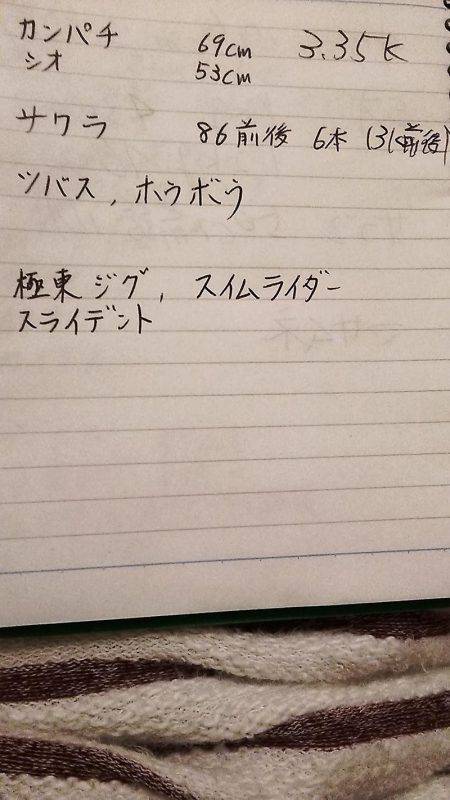 カンパチ 69cm 3.35K
シオ 53cm
サワラ 86前後 6本 (3K前後)
ツバス, ホウボウ
極東ジグ, スイムライダー
スライデント